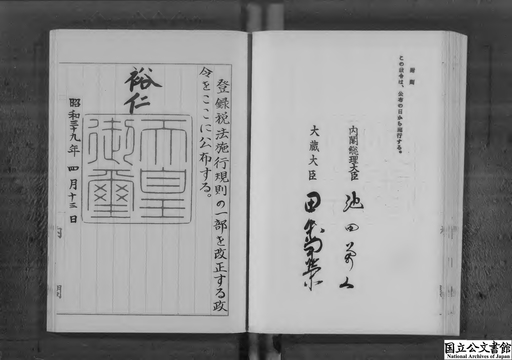 登録税法施行規則の一部を改正する政
令をここに公布する。
裕仁
天皇
御璽
昭和三十九年 四月十三日
附則
この政令は、公布の日から施行する。
内閣総理大臣 池田勇人
大蔵大臣 田中角榮
国立公文書館
National Archives of Japan